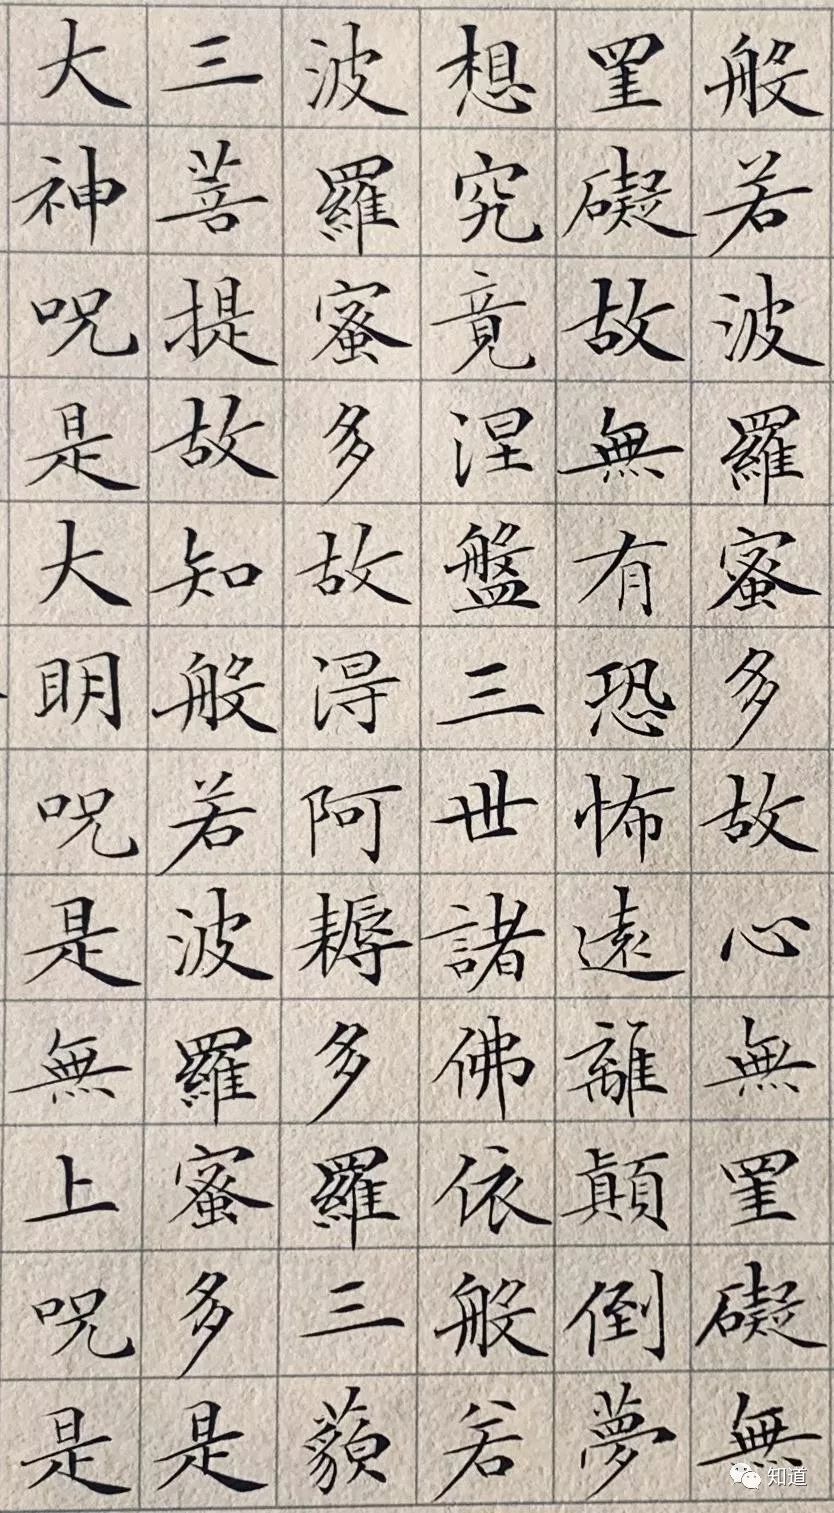 般若波羅蜜多故心無罣礙無
罣礙故無有恐怖遠離顛倒夢
想究竟涅盤三世諸佛依般若
波羅蜜多故得阿耨多羅三藐
三菩提故知般若波羅蜜多是
大神咒是大明咒是無上咒是
知道